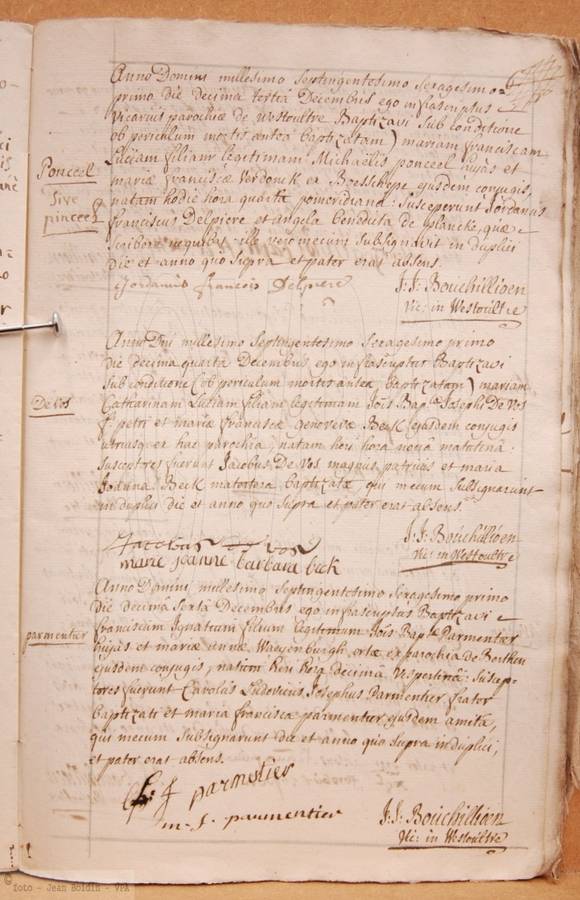 Anno Domini millesimo Septingentesimo Sexagesimo
primo die decima tertia Decembris ego infrascriptus
vicarius parochiæ de Westoultre Baptizavi Sub conditione
ob periculum mortis antea baptizatam) mariam franciscam
Luciam filiam legitimam Michaëlis ponceel hujus et
mariæ franciscæ Verdonck ex Boesschepe ejusdem conjugis
natam hodie hora quarta pomeridiana: Susceperunt Jordanus
franciscus Delpiere et angela benedicta de plancke, quæ
scribere nequibat, ille vero mecum Subsignavit in duplici
die et anno quo Supra et pater erat absens.
Ponceel
sive
pinceel
Jordanus francois Delpiere
J: J: Bouchillioen
Vic: in Westoultre
Anno Dni millesimo Septingentesimo Sexagesimo primo
die decima quarta Decembris ego infrascriptus Baptizavi
Sub conditione (ob periculum mortis antea baptizatam) mariam
Catharinam Luciam filiam legitimam Jois Bapte Josephi De Vos
f. petri et mariæ franciscæ genovevæ Beck ejusdem conjugis
utriusque ex hac parochia, natam heri hora nona matutina.
Susceptores fuerunt Jacobus De Vos magnus patruus et maria
Joanna Beck matertera baptizatæ qui mecum Subsignarunt
in duplici die et anno quo Supra et pater erat absens.
De Vos
Jacobus De vos
marie jeanne barbara beck
J: J: Bouchillioen
Vic: in Westoultre
Anno Domini millesimo Septingentesimo Sexagesimo primo
die decimâ Sextâ Decembris ego infrascriptus Baptizavi
franciscum Ignatium filium legitimum Jois Bapte Parmentier
hujus et mariæ annæ Waeyenburgh ortæ ex parochia de Borthen
ejusdem conjugis, natum heri hora decimâ Vespertinâ: Suscep-
tores fuerunt Carolus Ludovicus Josephus Parmentier frater
baptizati et maria francisca parmentier ejusdem amita,
qui mecum Subsignarunt die et anno quo Supra in duplici,
et pater erat absens.
parmentier
parmetier
m. f. parmentier
J: J: Bouchillioen
Vic: in Westoultre
© foto - Jean Boldin - VPA